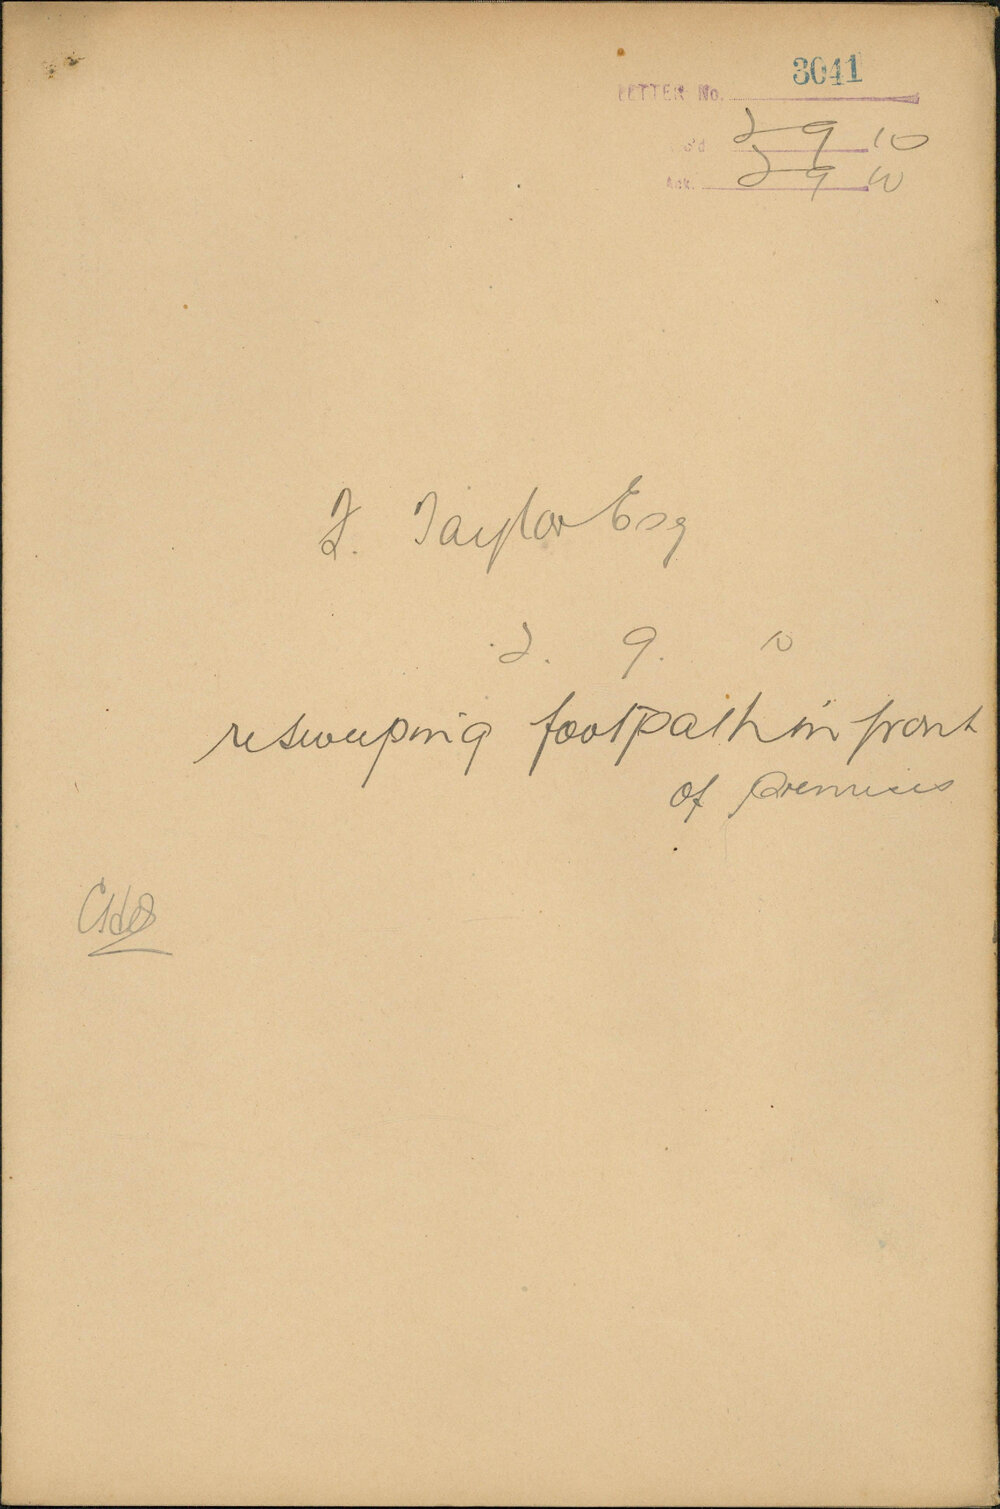 LETTER No. 3041
2 9 10
Ack. 2 9 10
F. Taylor Esq
2. 9. 10
re sweeping footpath in front
of Premises